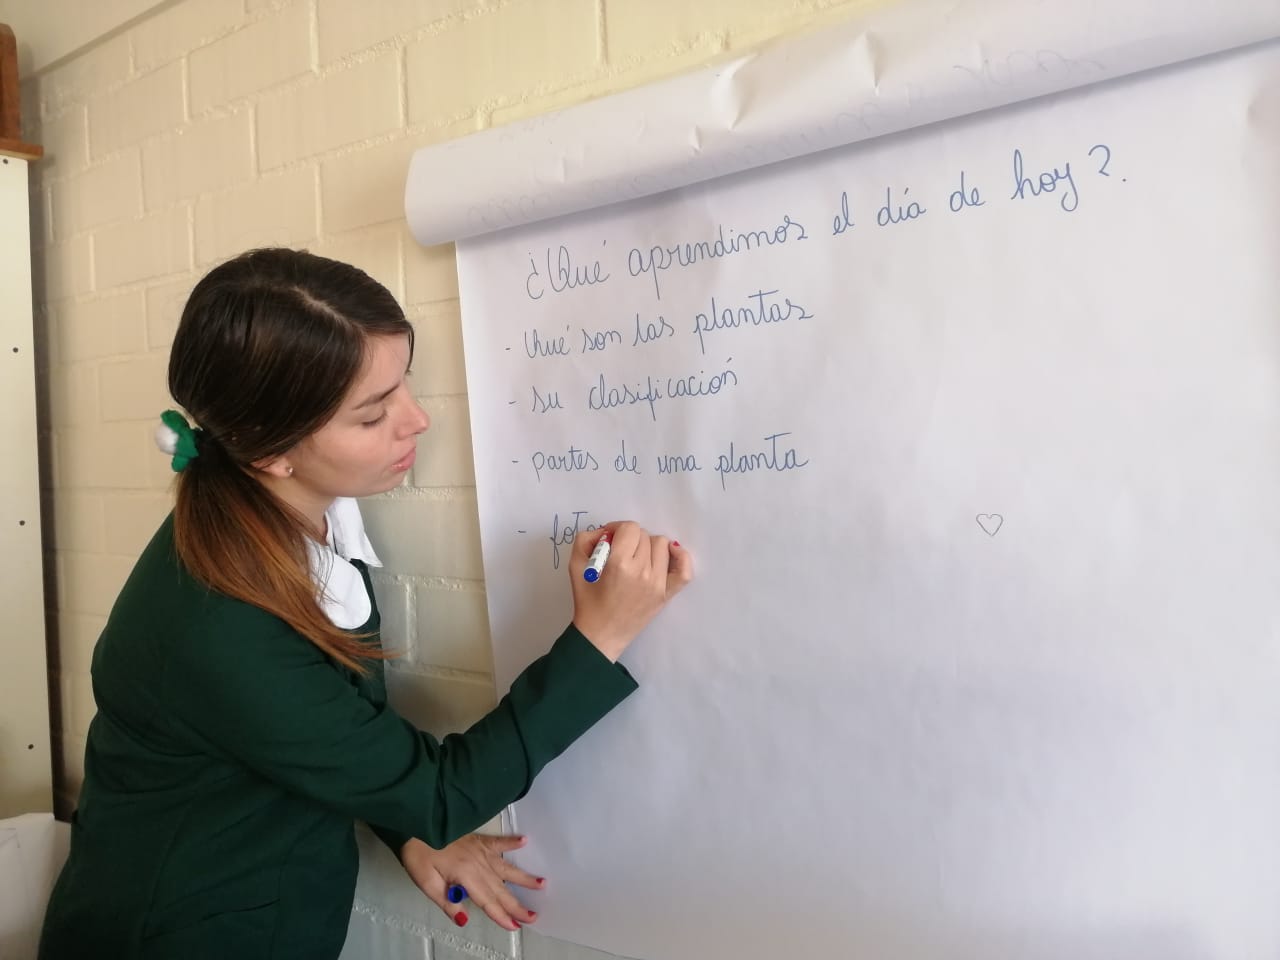 ¿Qué aprendimos el día de hoy?.
- Qué son las plantas
- su clasificación
- partes de una planta
- foto